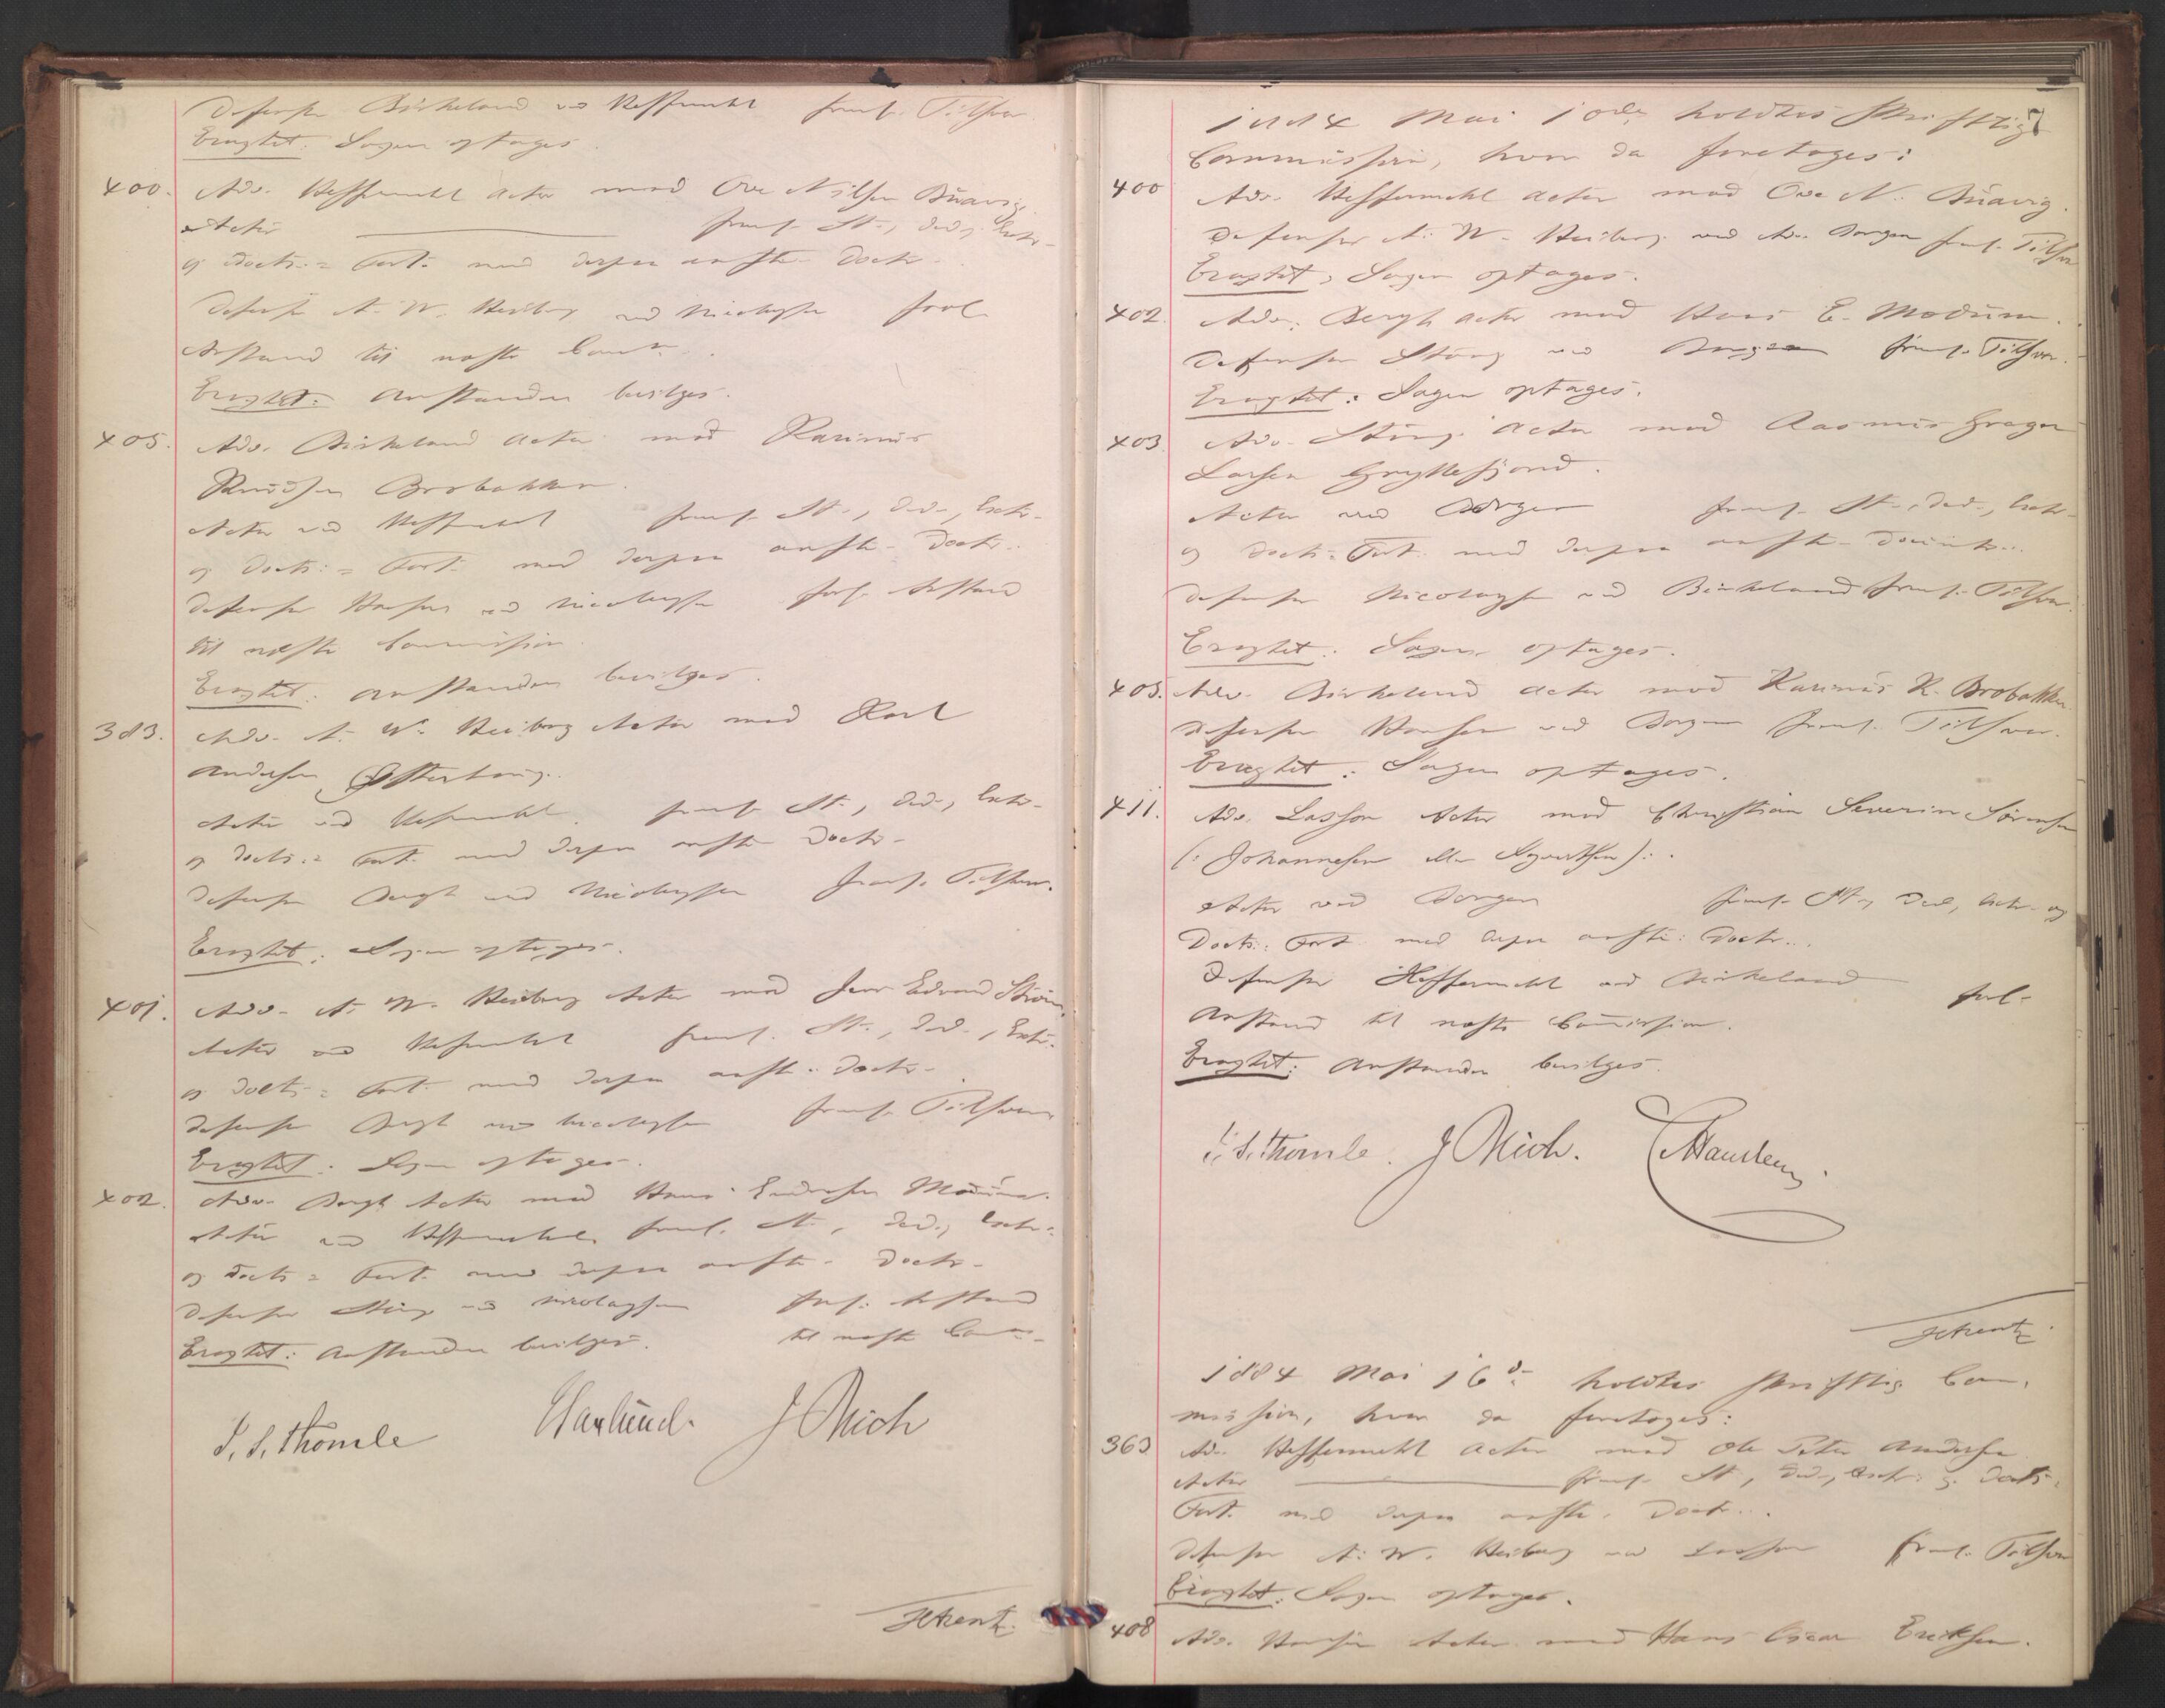 Defensor Birkeland ved Heffermehl freml. Tilsvar.
Eragtet: Sagen optages.
400. Adv. Heffermehl Actor mod Ove Nilsen Buavig
Actor freml. St., Ded., Extr.
og Doctr. = Fort. med derpaa anførte Doctr.
Defensor A. W. Heiberg ved Nicolaysen forl.
Anstand til næste Comm.
Eragtet: Anstanden bevilges.
405. Adv. Birkeland Actor mod Karinus
Knudsen Brobakken.
Actor ved Heffermehl freml. St., Ded., Extr.
og Doctr. = Fort. med derpaa anførte Doctr.
Defensor Hansen ved Nicolaysen forl. Anstand
til næste Commission.
Eragtet: Anstanden bevilges.
383. Adv. A. W. Heiberg Actor mod Karl
Andersen
Actor ved Heffermehl freml. St., Ded., Extr.
og Doctr. = Fort. med derpaa anførte Doctr.
Defensor Bergh ved Nicolaysen freml. Tilsvar.
Eragtet: Sagen optages.
401. Adv. A. W. Heiberg Actor mod Jens Edvard Ström.
Actor ved Heffermehl freml. St., Ded., Extr.
og Doctr. = Fort. med derpaa anførte Doctr.
Defensor Bergh ved Nicolaysen freml. Tilsvar
Eragtet: Sagen optages.
402. Adv. Bergh Actor mod Hans Modum.
Actor ved Heffermehl freml. St., Ded., Extr.
og Doctr. = Fort. med derpaa anførte Doctr.
Defensor Stang ved Nicolaysen forl. Anstand
Eragtet: Anstanden bevilges. til næste Comm.
I. S. Thomle J Mich
1884 Mai 10de holdtes skriftlig
Commission, hvor da foretoges:
400 Adv. Heffermehl Actor mod Ove N. Buavig.
Defensor A. W. Heiberg ved Adv. Borgen freml. Tilsvar
Eragtet: Sagen optages.
402. Adv. Bergh Actor mod Hans E. Modum.
Defensor Stang ved Borgen freml. Tilsvar.
Eragtet: Sagen optages.
403. Adv. Stang Actor mod Rasmus
Larsen Gryllefjord.
Actor ved Borgen freml. St., Ded., Extr.
og Doctr. Fort. med derpaa anførte
Defensor Nicolaysen ved Birkeland freml. Tilsvar.
Eragtet: Sagen optages.
405. Adv. Birkeland Actor mod Karinus K. Brobakken.
Defensor Hansen ved Borgen freml. Tilsvar.
Eragtet: Sagen optages.
411. Adv. Lasson Actor mod Christian Severin Sörensen
(: Johannesen eller Syvertsen):.
Actor ved Borgen freml. St., Ded., Extr. og
Doctr. Fort. med derpaa anførte Doctr.
Defensor Heffermehl ved Birkeland forl.
Anstand til næste Commission.
Eragtet: Anstanden bevilges.
I. S. Thomle. J Mich.
1884 Mai 16de holdtes skriftlig Com-
mission, hvor da foretoges:
363 Adv. Heffermehl Actor mod Ole Peter Andersen
Actor freml. St., Ded., Extr. og Doctr.
Fort. med derpaa anførte Doctr.
Defensor A. W. Heiberg ved Lasson freml. Tilsvar
Eragtet: Sagen optages.
408 Adv. Hansen Actor mod Hans Oscar Eriksen.